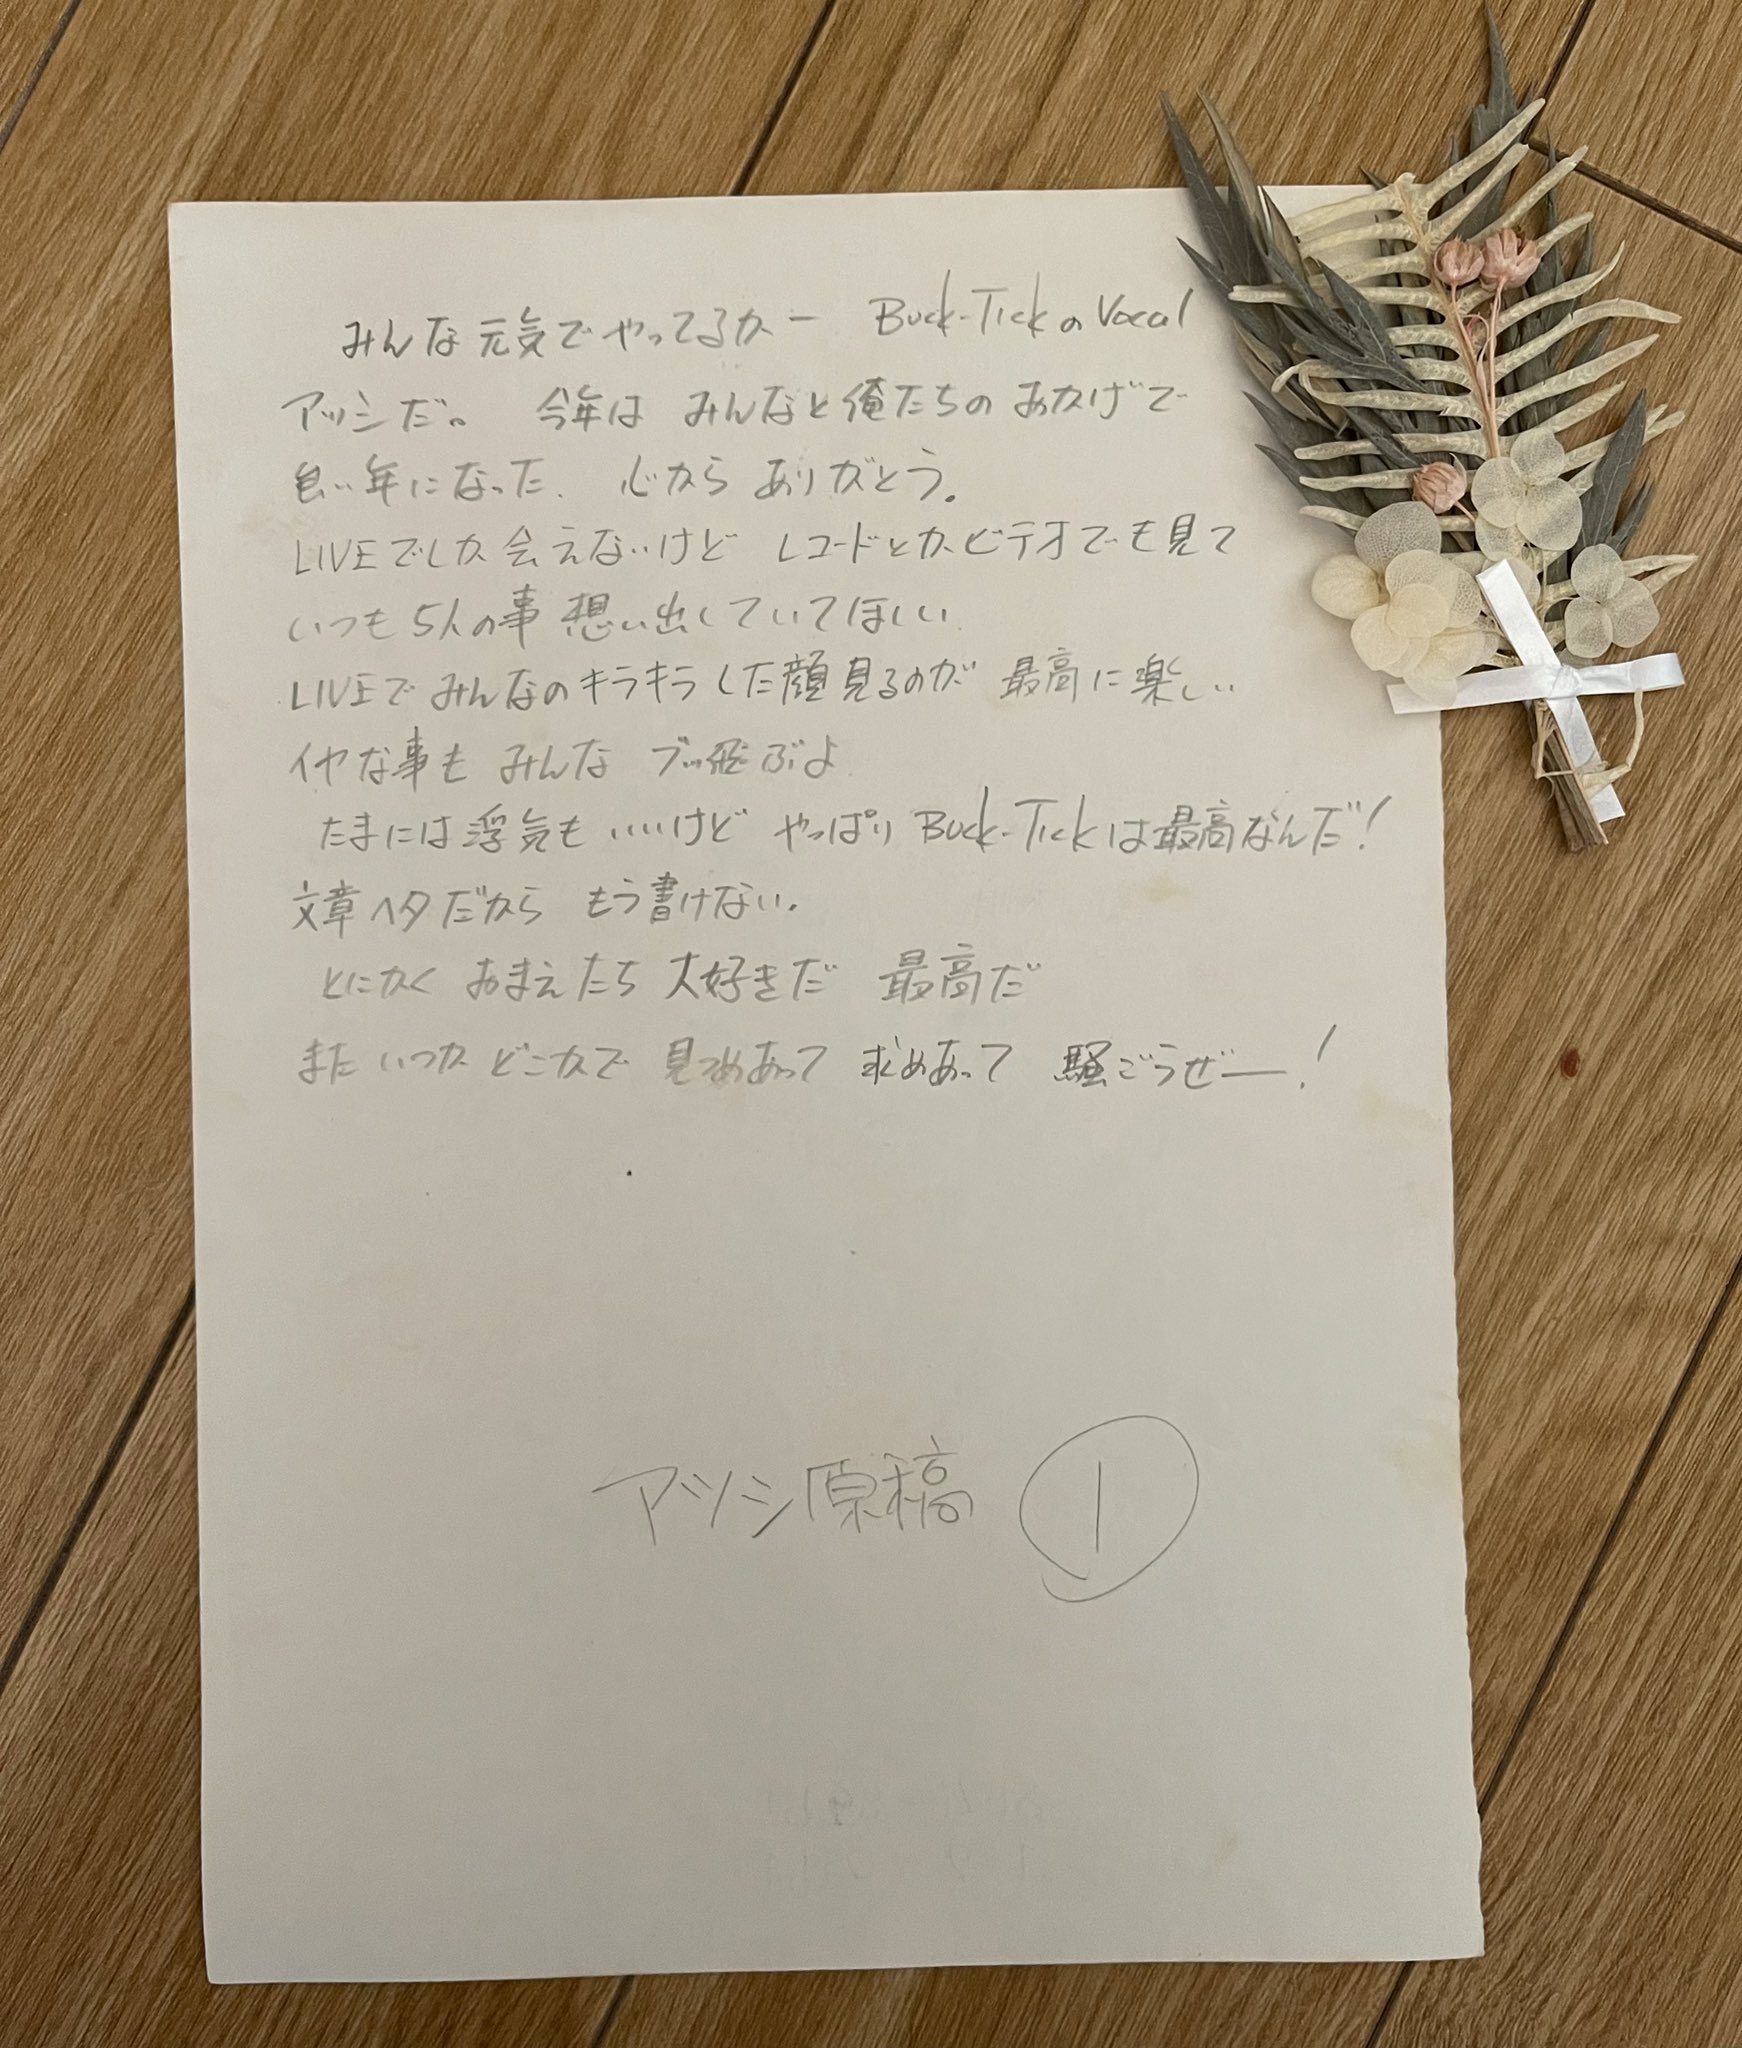 みんな元気でやってるかー Buck-TickのVocal
アツシだ。 今年は みんなと俺たちのおかげで
良い年になった. 心から ありがとう。
LIVEでしか会えないけど レコードとかビデオでも見て
いつも5人の事想い出していてほしい
LIVEでみんなのキラキラした顔見るのが 最高に楽しい
イヤな事も みんな ブッ飛ぶよ
たまには浮気もいいけど やっぱりBuck-Tickは最高なんだ!
文章ヘタだから もう書けない.
とにかく おまえたち 大好きだ 最高だ
またいつか どこかで 見つめあって 求めあって 騒ごうぜー!
アツシ原稿 ①